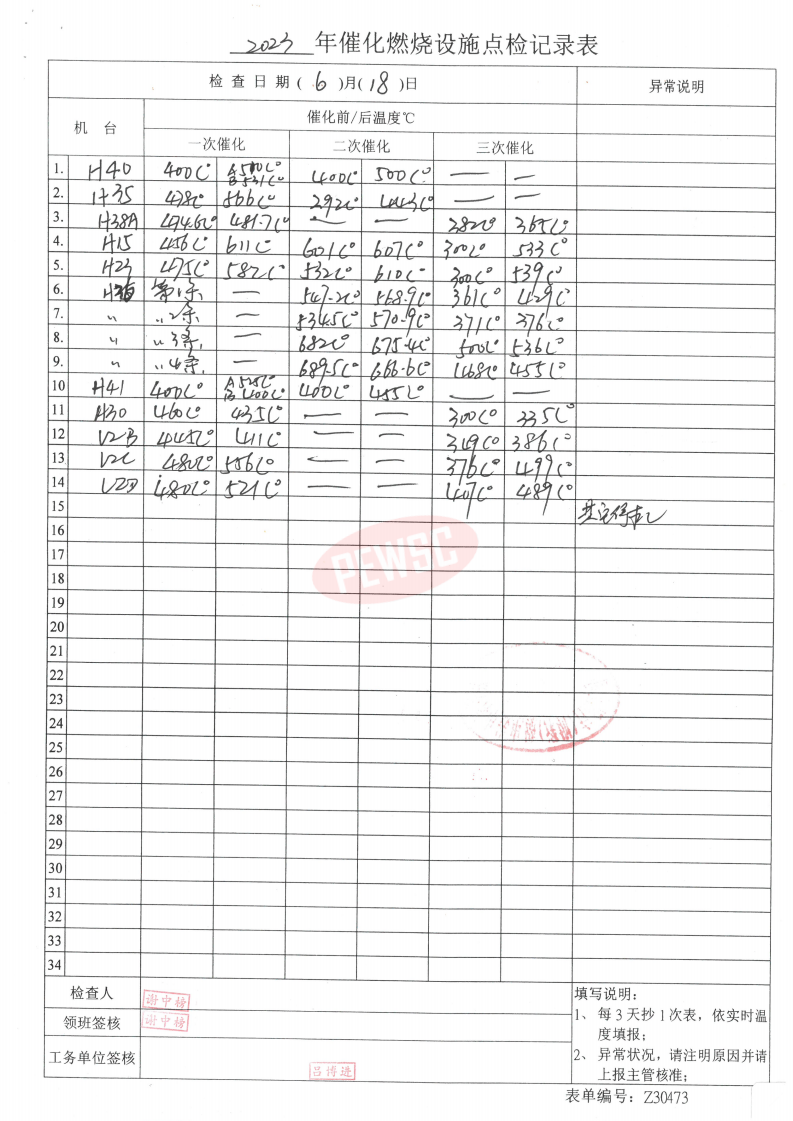 2023 年催化燃烧设施点检记录表
检 查 日 期 ( 6 )月( 18 )日 异常说明
机 台 催化前/后温度℃
一次催化 二次催化 三次催化
1. H40 400C° A500C° B531C° 400C° 500C° — —
2. H35 438C° 566C° 292C° 443C° — —
3. H38A 494.6C° 481.7C° — — 282C° 365C°
4. H15 456C° 611C° 601C° 607C° 300C° 533C°
5. H23 475C° 587C° 532C° 610C° 300C° 539C°
6. 第1条 — 547.2C° 568.9C° 361C° 429C°
7. 〃 〃2条 — 534.5C° 570.9C° 371C° 376C°
8. 〃 〃3条 — 682C° 675.4C° 500C° 536C°
9. 〃 〃4条 — 689.5C° 666.6C° 468C° 455C°
10 H41 400C° A525C° B400C° 400C° 455C° — —
11 H30 460C° 435C° — — 300C° 335C°
12 V2B 445C° 411C° — — 349C° 386C°
13 V2C 480C° 556C° — — 376C° 499C°
14 V2D 480C° 521C° — — 407C° 489C°
15 其它停机
16
17
18
19
20
21
22
23
24
25
26
27
28
29
30
31
32
33
34
PEWSC
检查人 谢中榜
领班签核 谢中榜
工务单位签核 吕博进
填写说明：
1、每3天抄1次表，依实时温
度填报；
2、异常状况，请注明原因并请
上报主管核准；
表单编号：Z30473